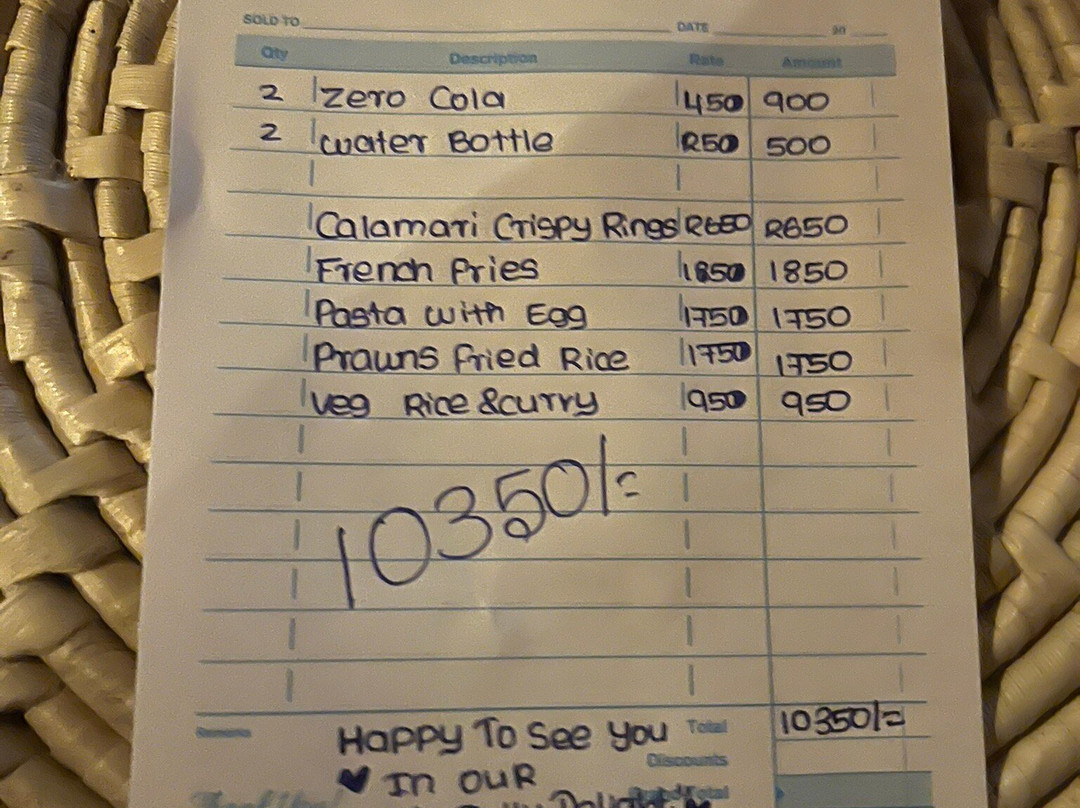 SOLD TO DATE 20
Qty Description Rate Amount
2 Zero Cola 450 900
2 Water Bottle 250 500
Calamari Crispy Rings 2650 2650
French Fries 1850 1850
Pasta with Egg 1750 1750
Prawns Fried Rice 1750 1750
Veg Rice & curry 950 950
10350/=
Remarks Total 10350/=
Happy To See You
Discounts
♥ In our
Total